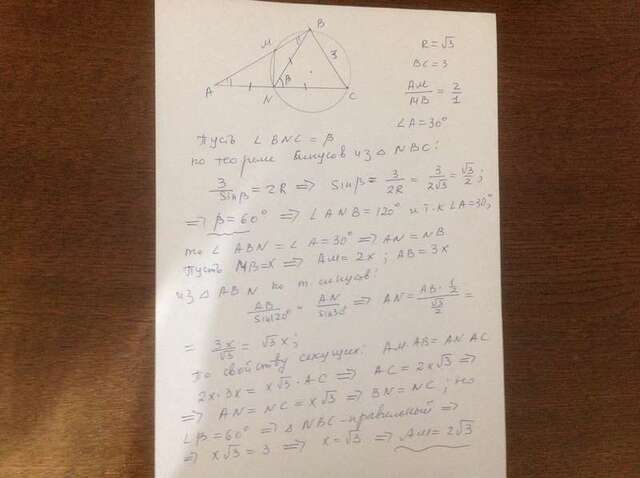 B
M
3
A
N
β
C
R = √3
BC = 3
AM/MB = 2/1
∠A = 30°
Пусть ∠BNC = β
по теореме синусов из △ NBC:
3/sinβ = 2R ⇒ sinβ = 3/2R = 3/2√3 = √3/2;
⇒ β = 60° ⇒ ∠ANB = 120° и т.к ∠A = 30°,
то ∠ABN = ∠A = 30° ⇒ AN = NB.
Пусть MB = x ⇒ AM = 2x; AB = 3x
из △ABN по т. синусов:
AB/sin120° = AN/sin30° ⇒ AN = AB · 1/2 / √3/2 =
= 3x/√3 = √3x;
По свойству секущих: AM·AB = AN·AC
2x·3x = x√3·AC ⇒ AC = 2x√3 ⇒
⇒ AN = NC = x√3 ⇒ BN = NC; но
∠β = 60° ⇒ △NBC - правильный ⇒
⇒ x√3 = 3 ⇒ x = √3 ⇒ AM = 2√3